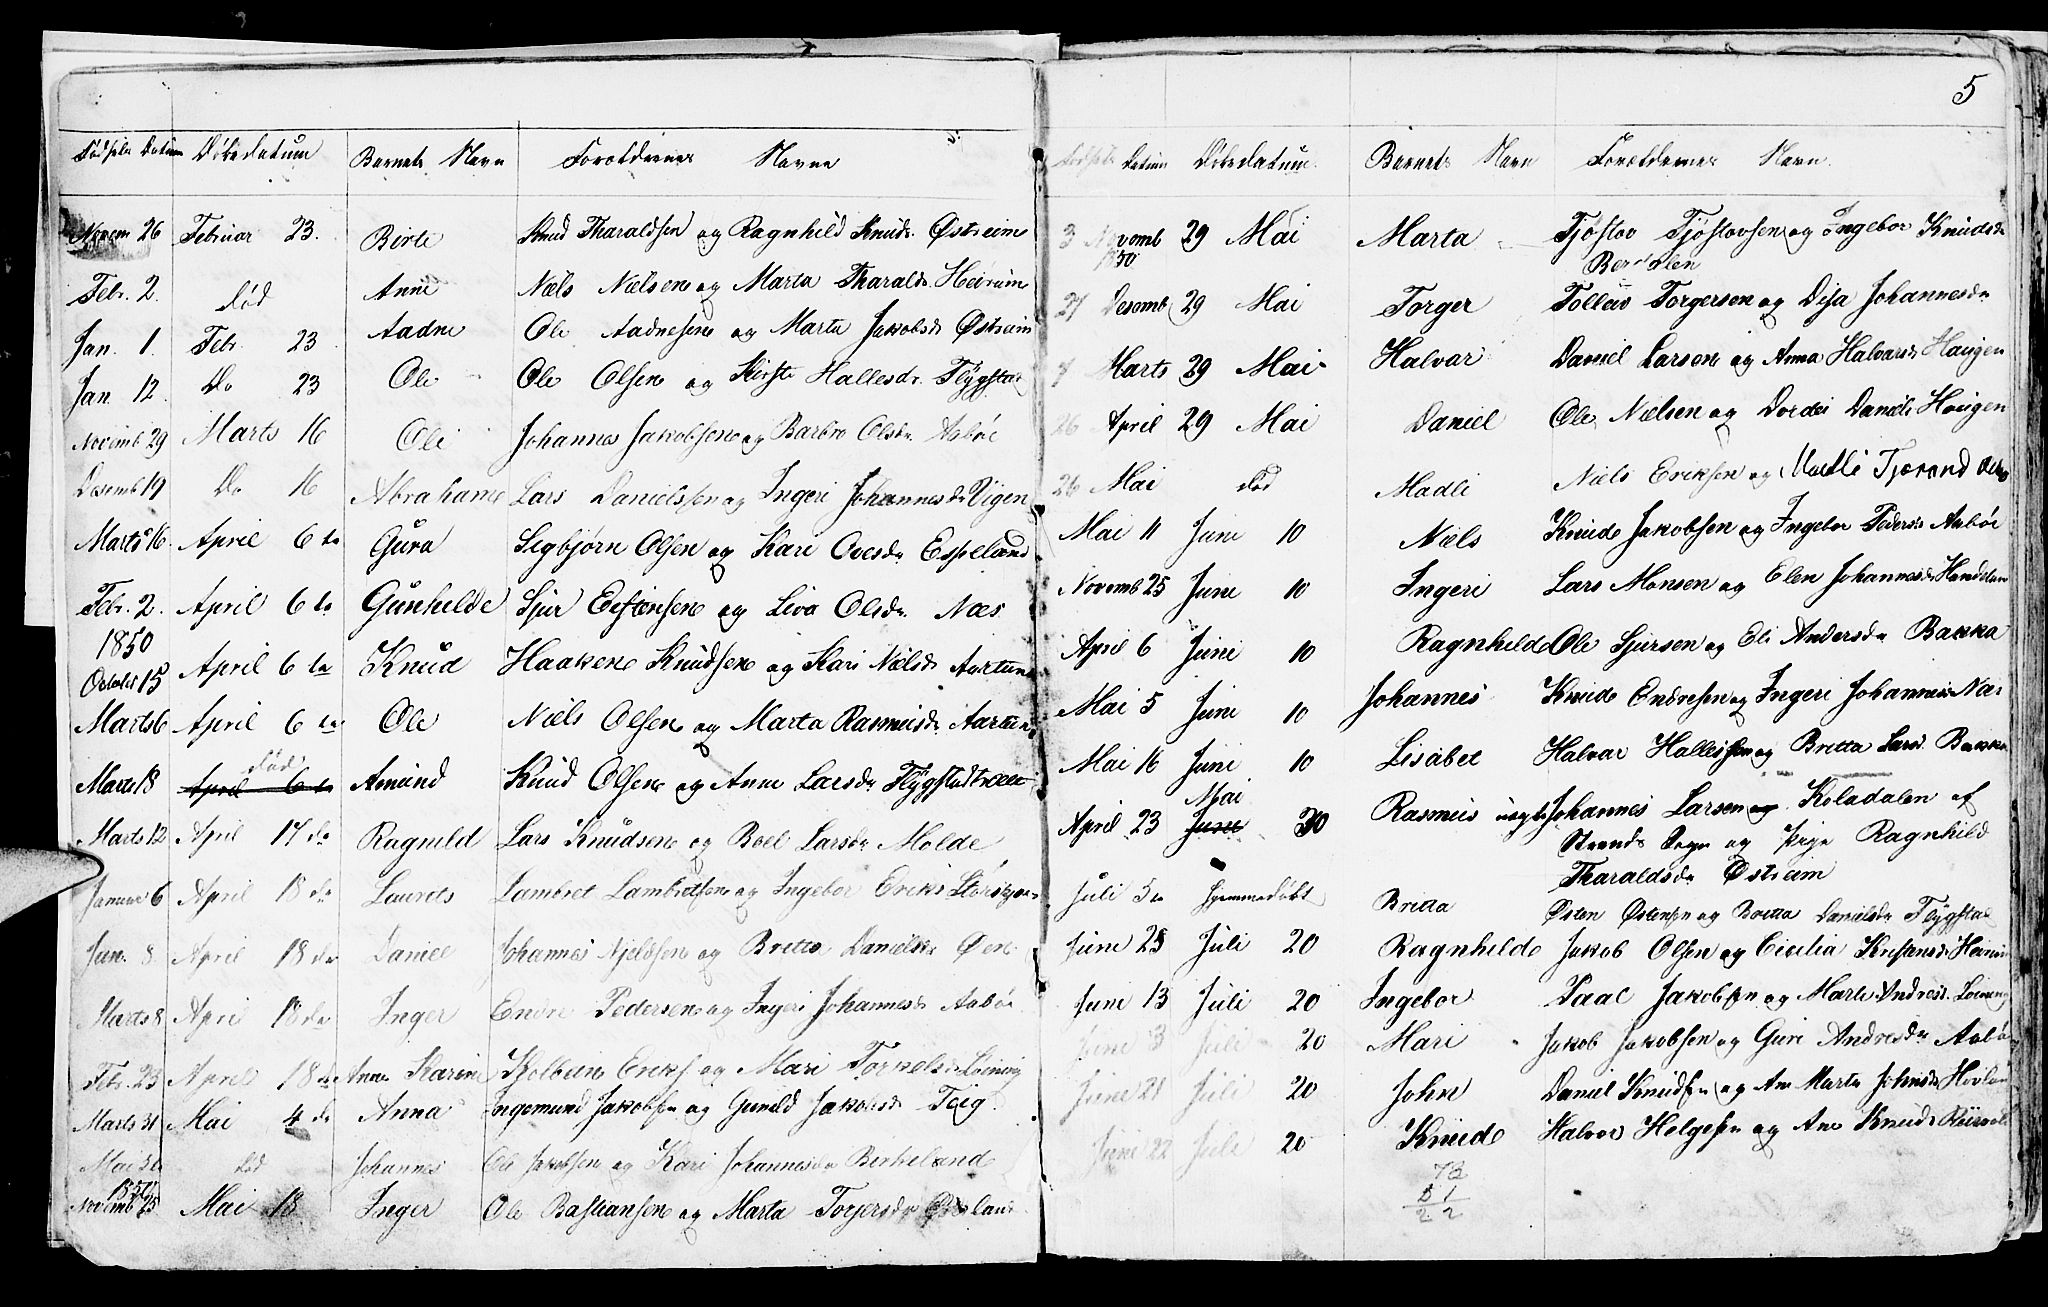 Fødsels Datum Døbedatum Barnets Navn Forældrenes Navne
Novem 26 Februar 23. Birte Knud Tharaldsen og Ragnhild Knudsd. Østreim
Febr. 2. død Anne Nels Nelsen og Marta Tharaldsd. Heirum
Jan. 1. Febr. 23 Aadne Ole Aadnesen og Marta Jakobsd. Østreim
Jan. 12. Do 23 Ole Ole Olsen og Kirsti Hallesdr. Flygstad
Novemb 29 Marts 16 Oli Johannes Jakobsen og Barbro Olsdr. Aabøe
Desemb 19 Do 16 Abrahame Lars Danielssen og Ingeri Johannesdr Vigen
Marts 16. April 6 te Gura Sigbjørn Olsen og Kari Ovesdr Espeland
Febr. 2. April 6 te Gunhilde Sjur Eestensen og Liva Olsdr. Næs
1850
October 15 April 6 te Knud Haaken Knudsen og Kari Nelsdr Aartun
Marts 6 April 6 te Ole Niels Olsen og Marta Rasmusdr. Aartun
død
Marts 18 April 6 te Amund Knud Olsen og Anne Larsdr Flygstadtveit
Marts 12 April 17 de Ragnild Lars Knudsen og Boel Larsdr Molde
Januar 6 April 18 de Laurets Lambret Lambretsen og Ingebor Eriksd
Jan. 8. April 18 de Daniel Johannes Njeldsen og Britta Danielsdr Øen
Marts 8 April 18 de Inger Endre Pedersen og Ingeri Johannesdr Aabøe
Febr. 23 April 18 de Anne Karine Kolbein Eriks. og Mari Torkelsdr Løining
Marts 31 Mai 4 de Anna Ingemund Jakobsen og Gunild Jakobsdr Teig.
Mai død Johannes Ole Jakobsen og Kari Johannesdr Birkeland
Novemb 25 Mai 18 Inger Ole Bastiansen og Marta Torjersdr
5
Fødsels Datum Døbedatum. Barnets Navn Forældrenes Navn.
3 Novemb 29 Mai Marta Tjøstov Tjøstovsen og Ingebor Knudsdr
1850
27 Desemb 29 Mai Torger Tolleiv Torgersen og Disa Johannesdr
7 Marts 29 Mai Halvar Daniel Larsen og Anna Halvarsdr Haugen
26 April 29 Mai Daniel Ole Nelsen og Dordei Daniels Haugen
26 Mai død Madli Niels Eriksen og Madli Tjerand
Mai 11 Juni 10 Niels Knud Jakobsen og Ingebor Pedersdr Aabøe
Novemb 25 Juni 10 Ingeri Lars Monsen og Elen Johannesdr
April 6 Juni 10 Ragnhilde Ole Sjursen og Eli Andersdr Bakka
Mai 5 Juni 10 Johannes Knud Endresen og Ingeri Johannesdr Næs
Mai 16 Juni 10 Lisabet Halvar Hallesen og Britta Larsd. Bakka
Mai
April 23 June 30 Rasmus uegte Johannes Larsen og Koladalen af
Strands Sogn og Pige Ragnhild
Tharaldsdr Østreim
Juli 5 te hjemmedøbt Britta Østen Østensen og Britta Danielsdr Flygstad
June 25 Juli 20 Ragnhilde Jakob Olsen og Cicilia Kristensdr
Juni 13 Juli 20 Ingebor Isaac Jakobsen og Marte Andresd. Løining
June 3 Juli 20 Mari Jakob Jakobsen og Guri Andresdr Aabøe
June 21 Juli 20 John Daniel Knudsen og Ane Marta Johnsdr
Juni 22 Juli 20 Knud Halvor Helgesen og Ane Knudsdr
73
51
22